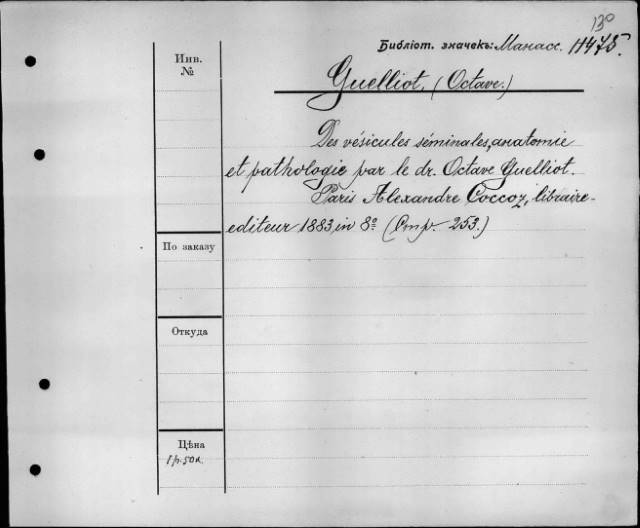 130
Библіот. значекъ: Манасс. 11475.
Инв.
№
Guelliot. (Octave.)
Des vésicules séminales, anatomie
et pathologie par le dr. Octave Guelliot.
Paris Alexandre Coccoz, libraire-
editeur 1883, in 8º (Стр. 253.)
По заказу
Откуда
Цѣна
1 р. 50 к.